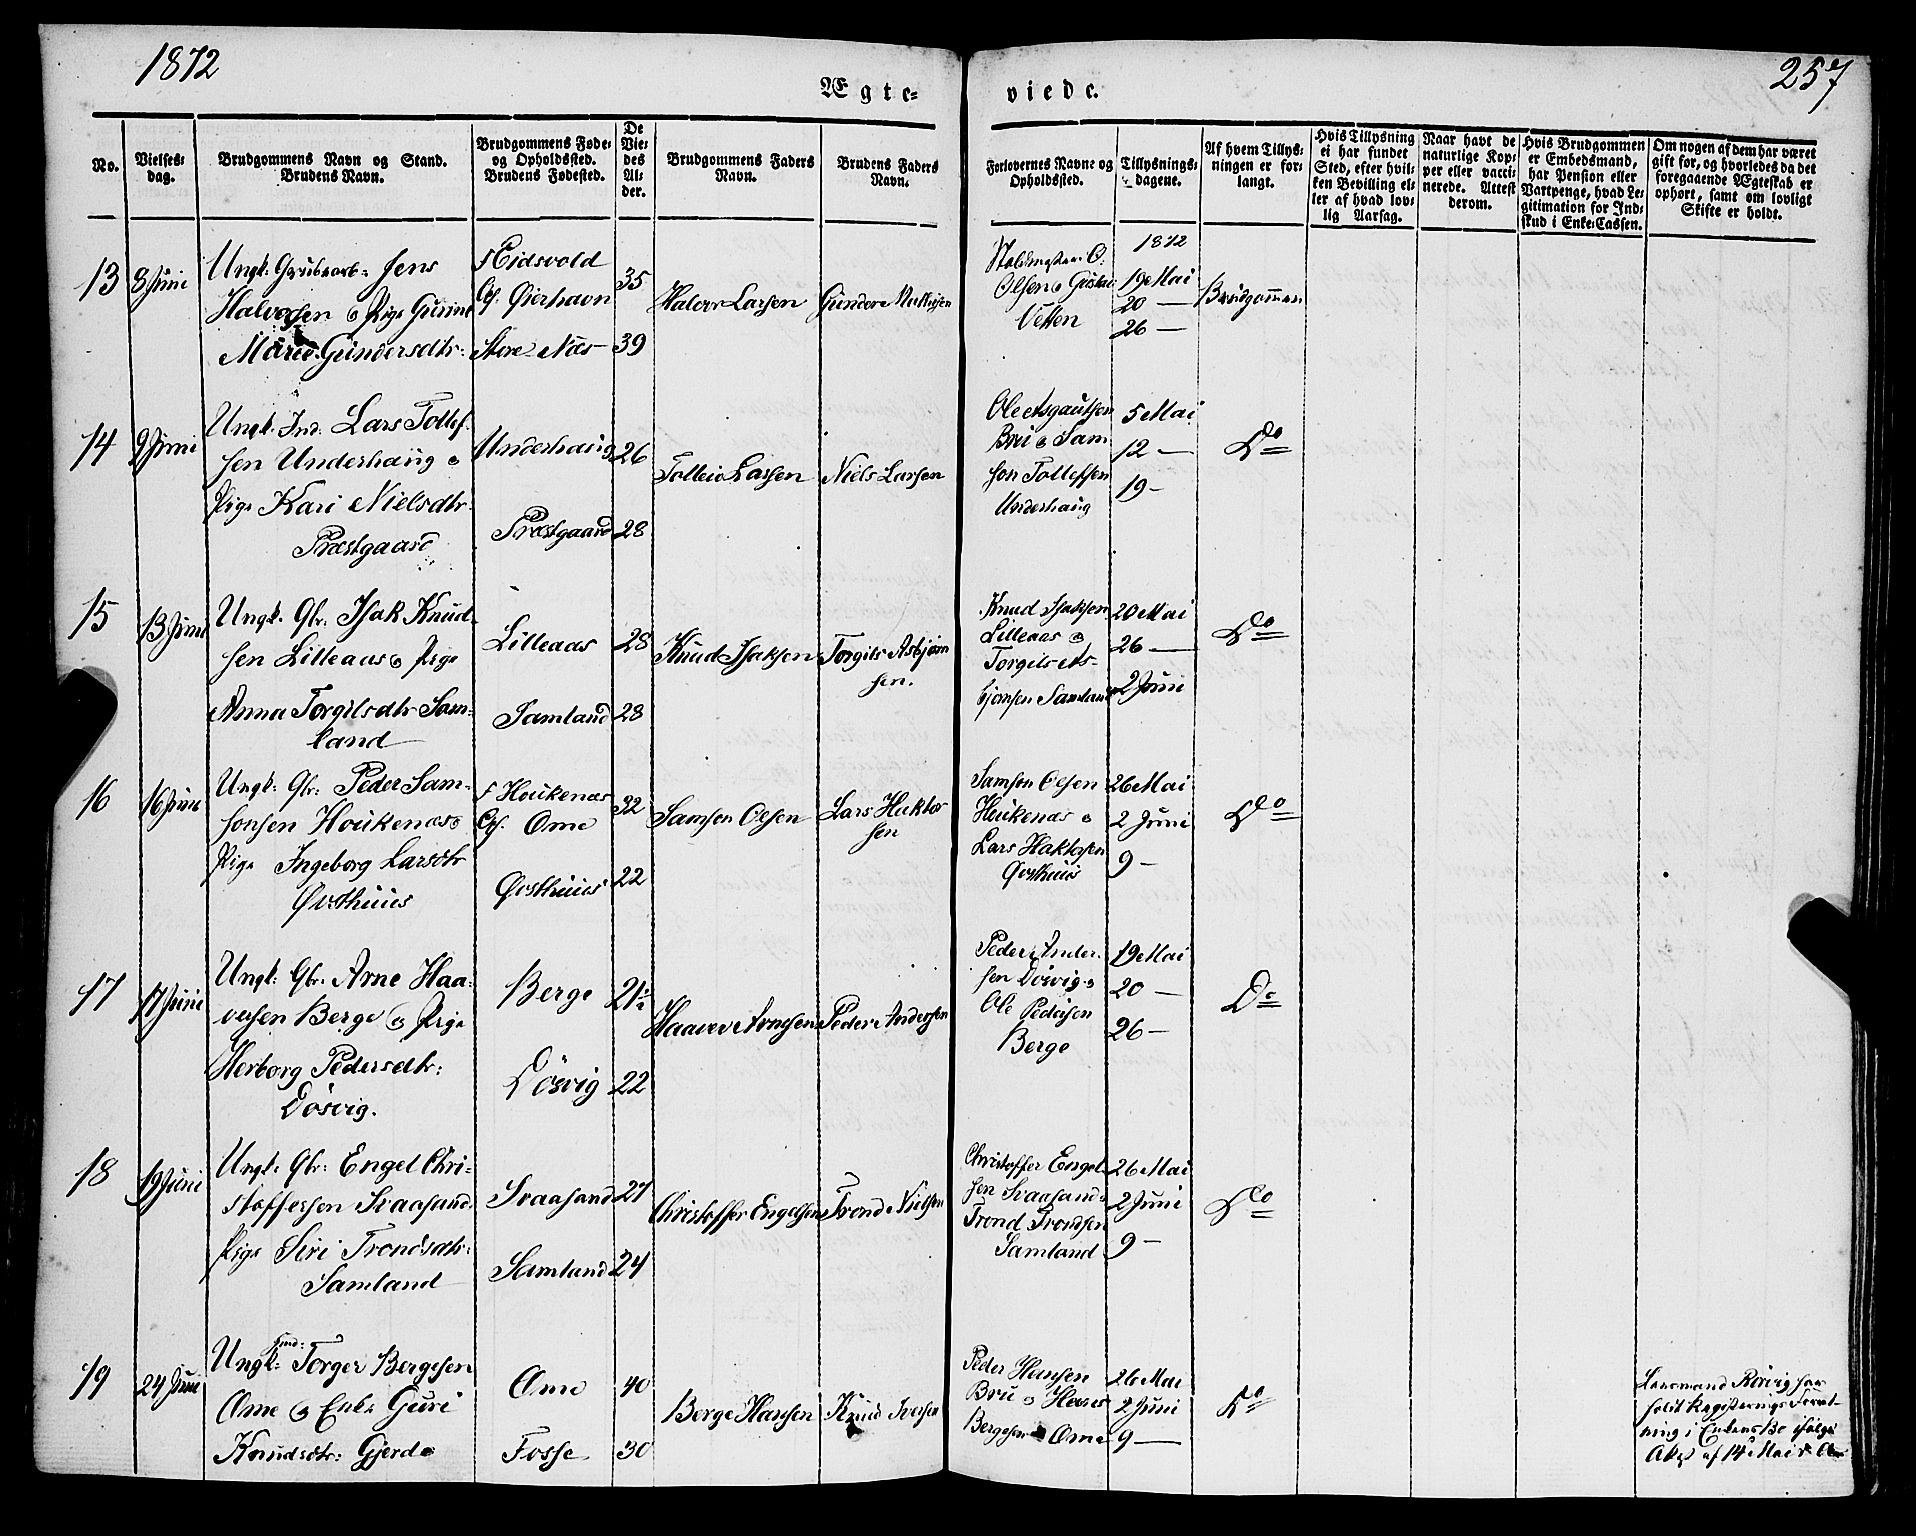 1872
257
Ægte=
viede.
No.
Vielses-
dag.
Brudgommens Navn og Stand.
Brudens Navn.
Brudgommens Føde-
og Opholdssted.
Brudens Fødested.
De
Vie-
des
Al-
der.
Brudgommens Faders
Navn.
Brudens Faders
Navn.
Forlovernes Navne og
Opholdssted.
Tillysnings-
dagene.
Af hvem Tillys-
ningen er for-
langt.
Hvis Tillysning
ei har fundet
Sted, efter hvil-
ken Bevilling el-
ler af hvad lov-
lig Aarsag.
Naar havt de
naturlige Kop-
per eller vacci-
nerede. Attest
derom.
Hvis Brudgommen
er Embedsmand,
har Pension eller
Vartpenge, hvad Le-
gitimation for Ind-
skud i Enke-Cassen.
Om nogen af dem har været
gift for, og hvorledes da det
foregaaende Ægteskab er
ophørt, samt om lovligt
Skifte er holdt.
13
8 Juni
Ungk. Grubearb: Jens
Halvorsen o Pige Gurine
Marie Gundersdtr:
f Eidsvold
Op. Øierhavn
Store Næs
35
39
Halvor Larsen
Gunder Mathisen
Olsen o Gustav
Vetten
1872
19 Mai
20 —
26 —
Brudgommen
14
9 Juni
Ungk. Ind. Lars Tollef-
sen Underhaug o
Pige Kari Nielsdtr.
Præstgaard
Underhaug
Præstgaard
26
28
Tolleiv Larsen
Niels Larsen
Ole Asgautsen
Bru o Sam
son Tollefsen
Underhaug
5 Mai
12 —
19 —
Do
15
13 Juni
Ungk. Gbr. Isak Knud-
sen Lilleaas o Pige
Anna Torgilsdtr Sam-
land
Lilleaas
Samland
28
28
Knud Isaksen
Torgils Asbjørn
sen.
Knud Isaksen
Lilleaas o
Torgils As-
bjørnsen Samland
20 Mai
26 —
2 Juni
Do
16
16 Juni
Ungk: Gbr: Peder Sam-
sonsen Houkenæs o
Pige Ingeborg Larsdtr
Øvsthuus
f Houkenæs
Op. Ome
Øvsthuus
32
22
Samson Olsen
Lars Haktor
sen
Samson Olsen
Houkenæs o
Lars Haktorsen
Øvsthuus
26 Mai
2 Juni
9 —
Do
17
17 Juni
Ungk: Gbr. Arne Haa-
versen Berge o Pige
Herborg Pedersdtr:
Dösvig.
Berge
Dösvig
21½
22
Haaver Arnesen
Peder Andersen
Peder Ander-
sen Dösvig o
Ole Pedersen
Berge
19 Mai
20 —
26 —
Do
18
19 Juni
Ungk. Gbr: Engel Chri-
stoffersen Svaasand
Pige Siri Trondsdtr:
Samland
Svaasand
Samland
27
24
Christoffer Engelsen
Trond Nielsen
Christoffer Engel-
sen Svaasand o
Trond Trondsen
Samland
26 Mai
2 Juni
9 —
Do
19
24 Juni
Ind:
Ungk: Torger Bergesen
Ome o Enke Guri
Knudsdtr: Gjerde
Ome
Fosse
40
30
Berge Hansen
Knud Iversen
Peder Hansen
Bru o Hans
Bergesen Ome
26 Mai
2 Juni
9 —
Do
Lensmand Rörvig har
holdt Registerings Forret-
ning i Enkens Bo ifölge
af 14 Mai